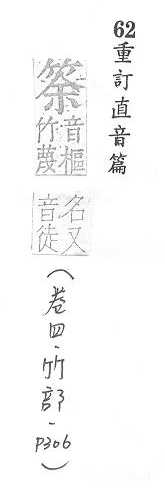 62重訂直音篇
筡音樞竹蔑
名又音徒
(卷四·竹部·P306)